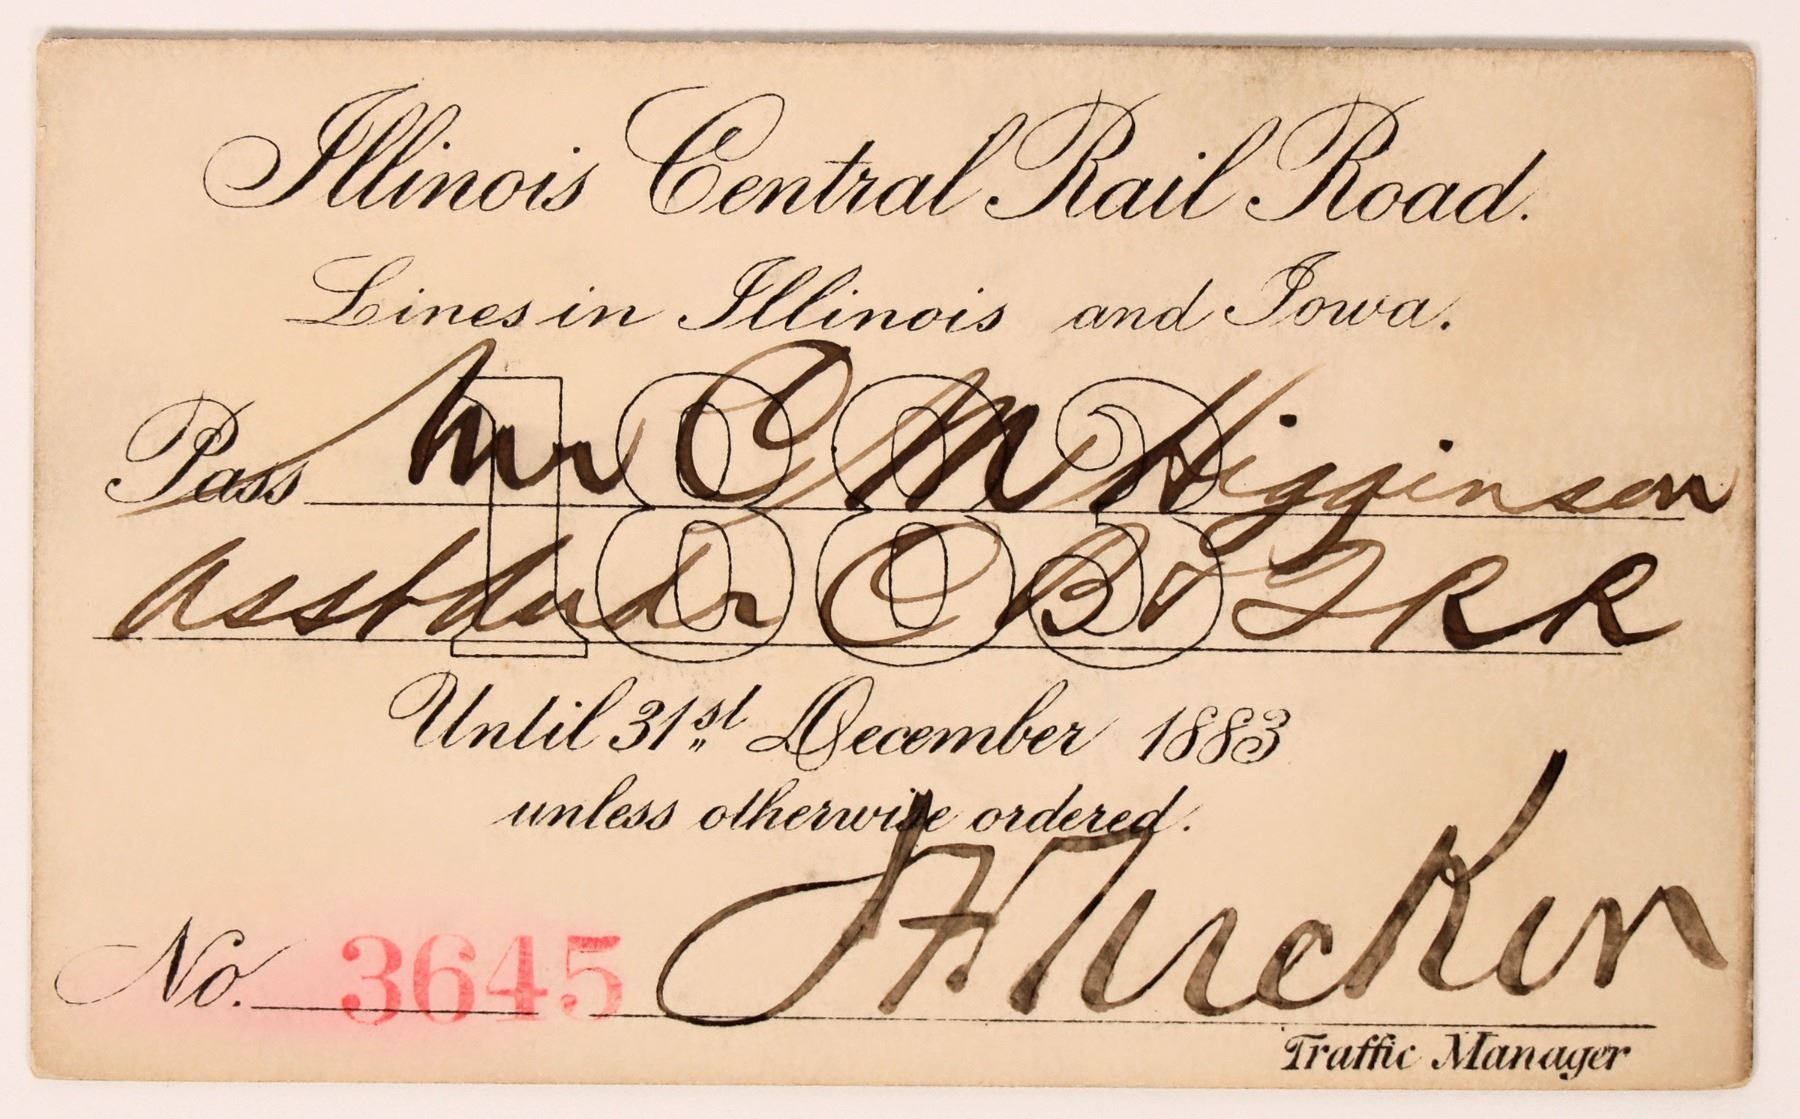 Illinois Central Rail Road.
Lines in Illinois and Iowa.
1883
Pass Mr C M Higginson
Asst Audr C B & Q R R
Until 31st December 1883
unless otherwise ordered.
No. 3645 J F Tucker
Traffic Manager